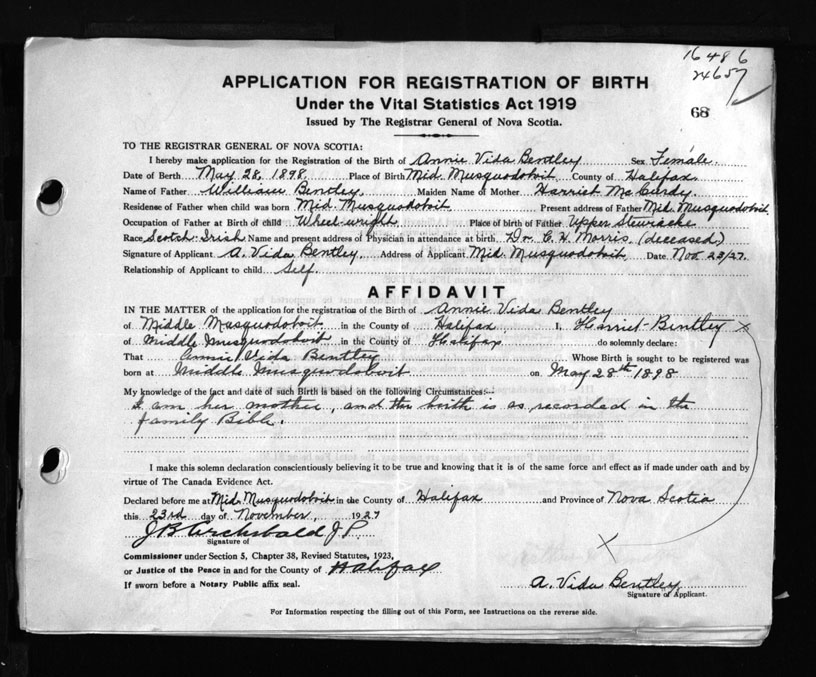 16486
24657
68
APPLICATION FOR REGISTRATION OF BIRTH
Under the Vital Statistics Act 1919
Issued by The Registrar General of Nova Scotia.
TO THE REGISTRAR GENERAL OF NOVA SCOTIA:
I hereby make application for the Registration of the Birth of Annie Vida Bentley Sex Female.
Date of Birth May 28, 1898. Place of Birth Mid. Musquodoboit County of Halifax
Name of Father William Bentley. Maiden Name of Mother Harriet McCurdy.
Residense of Father when child was born Mid Musquodoboit Present address of Father Mid. Musquodoboit
Occupation of Father at Birth of child Wheel-wright Place of birth of Father Upper Stewiacke
Race Scotch-Irish Name and present address of Physician in attendance at birth Dr. C. H. Morris (deceased)
Signature of Applicant A. Vida Bentley. Address of Applicant Mid Musquodoboit Date Nov 23/27.
Relationship of Applicant to child Self.
AFFIDAVIT
IN THE MATTER of the application for the registration of the Birth of Annie Vida Bentley
of Middle Musquodoboit in the County of Halifax I, Harriet Bentley x
of Middle Musquodoboit in the County of Halifax do solemnly declare:
That Annie Vida Bentley Whose Birth is sought to be registered was
born at Middle Musquodoboit on May 28th 1898
My knowledge of the fact and date of such Birth is based on the following Circumstances:—
I am her mother, and the birth is as recorded in the
family Bible.
I make this solemn declaration conscientiously believing it to be true and knowing that it is of the same force and effect as if made under oath and by
virtue of The Canada Evidence Act.
Declared before me at Mid Musquodoboit in the County of Halifax and Province of Nova Scotia
this 23rd day of November, 1927
J B Archibald J. P.
Signature of
Commissioner under Section 5, Chapter 38, Revised Statutes, 1923,
or Justice of the Peace in and for the County of Halifax
If sworn before a Notary Public affix seal.
X
A. Vida Bentley
Signature of Applicant.
For Information respecting the filling out of this Form, see Instructions on the reverse side.